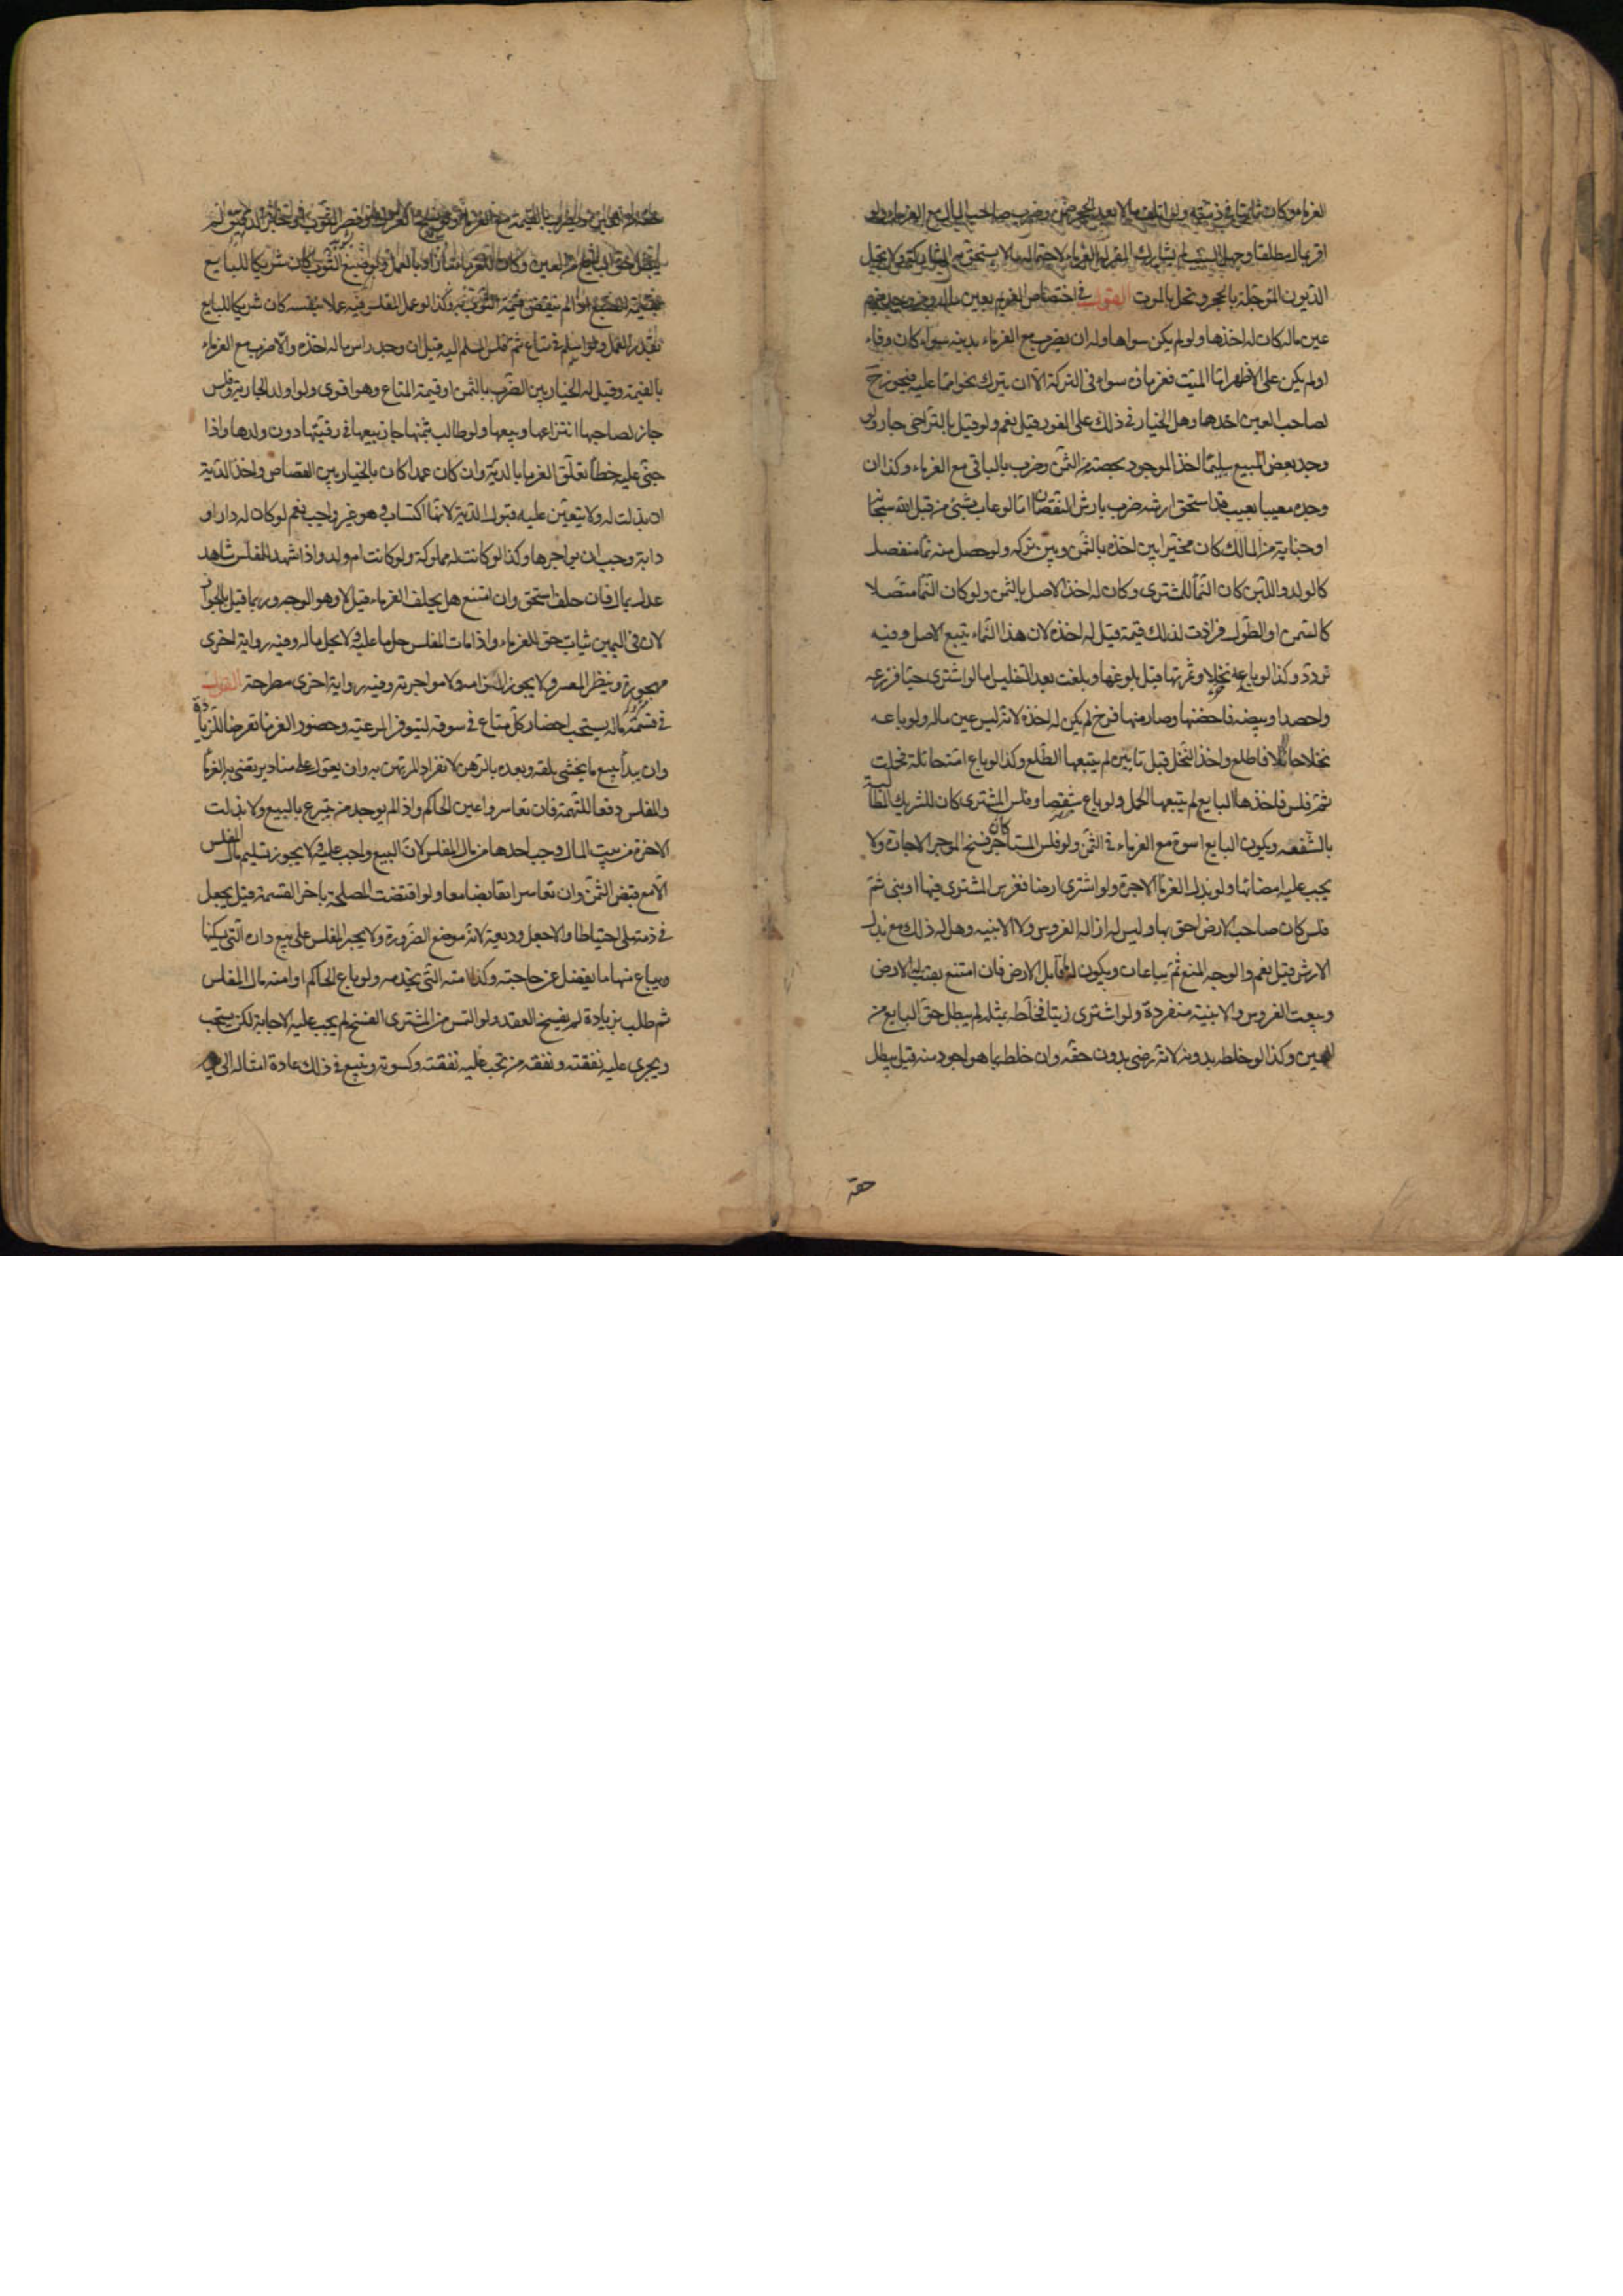 الغرماء وكان ثابتا في ذمته ولو اتلف مالا بعد الحجر ضمن وضرب صاحب المال مع الغرماء ولو
اقر بمال مطلقا وجهل السبب لم يشارك المقر له الغرماء لاحتمال ما لا يستحق به المشاركة ولا تحل
الديون المؤجلة بالحجر وتحل بالموت القول في اختصاص الغريم بعين ماله ومن وجد منهم
عين ماله كان له اخذها ولو لم يكن سواها وله ان يضرب مع الغرماء بدينه سواء كان وفاء
او لم يكن على الاظهر اما الميت فغرماؤه سواء في التركة الا ان يترك نحوا مما عليه فيجوز ح
لصاحب العين اخذها وهل الخيار في ذلك على الفور قيل نعم ولو قيل بالتراخي جاز ولو
وجد بعض المبيع سليما اخذ الموجود بحصته من الثمن وضرب بالباقي مع الغرماء وكذا ان
وجده معيبا بعيب قد استحق ارشه ضرب بارش النقصان اما لو عاب بشئ من قبل الله سبحانه
او جناية من المالك كان مخيرا بين اخذه بالثمن وبين تركه ولو حصل منه نما منفصل
كالولد واللبن كان النما للمشتري وكان له اخذ الاصل بالثمن ولو كان النما متصلا
كالسمن او الطول فزادت لذلك قيمته قيل له اخذه لان هذا النماء يتبع الاصل وفيه
تردد وكذا لو باعه نخلا وثمرتها قبل بلوغها وبلغت بعد التفليس اما لو اشترى حبا فزرعه
واحصد او بيضه فاحضنها وصار منها فرخ لم يكن له اخذه لانه ليس عين ماله ولو باعه
نخلا حائلا فاطلع واخذ النخل قبل تابيره لم يتبعها الطلع وكذا لو باع امة حائلة فحملت
ثم فلس فاخذها البايع لم يتبعها الحمل ولو باع شقصا وفلس المشتري كان للشريك المطالبة
بالشفعه ويكون البايع اسوة مع الغرماء في الثمن ولو فلس المستاجر كان فسخ الموجر الاجارة ولا
يجب عليه امضائها ولو بذل الغرما الاجرة ولو اشترى ارضا فغرس المشتري فيها او بنى ثم
فلس كان صاحب الارض احق بها وليس له ازالة الغروس ولا الابنيه وهل له ذلك مع بذل
الارش قيل نعم والوجه المنع ثم يباعان ويكون له ما قابل الارض فان امتنع بقيت له الارض
وبيعت الغروس والابنية منفردة ولو اشترى زيتا فخلطه بمثله لم يبطل حق البايع من
العين وكذا لو خلطه بدونه لانه رضي بدون حقه وان خلطه بما هو اجود منه قيل يبطل
حقه
حقه من العين ويضرب بالقيمة مع الغرماء
يبطل حق البايع من العين وكان للغرماء ما زاد بالعمل ولو صبغ الثوب كان شريكا للبايع
بقيمة الصبغ اذا لم ينقص قيمة الثوب به وكذا لو عمل المفلس فيه عملا بنفسه كان شريكا للبايع
بقدر العمل ولو اسلم في متاع ثم فلس المسلم اليه قيل ان وجد راس ماله اخذه والا ضرب مع الغرماء
بالقيمة وقيل له الخيار بين الضرب بالثمن او قيمة المتاع وهو اقوى ولو اولد الجارية وفلس
جاز لصاحبها انتزاعها وبيعها ولو طالب بثمنها جاز بيعها في رقبتها دون ولدها واذا
جنى عليه خطا تعلق الغرما بالدية وان كان عمدا كان بالخيار بين القصاص واخذ الدية
ان بذلت له ولا يتعين عليه قبول الدية لانها اكتساب وهو غير واجب نعم لو كان له دار او
دابة وجب ان يواجرها وكذا لو كانت له مملوكة ولو كانت ام ولد واذا شهد للمفلس شاهد
عدل بمال فان حلف استحق وان امتنع هل يحلف الغرماء قيل لا وهو الوجه وربما قيل بالجواز
لان في اليمين ثبات حق للغرماء واذا مات المفلس حل ما عليه ولا يحل ماله وفيه رواية اخرى
مهجورة وينظر المعسر ولا يجوز الزامه ولا مواجرته وفيه رواية اخرى مطرحة القول
في قسمة ماله يستحب احضار كل متاع في سوقه ليتوفر الرغبة وحضور الغرما تعرضا للزيادة
وان يبدأ ببيع ما يخشى تلفه وبعده بالرهن لانفراد المرتهن به وان يعول على مناد يرتضي به الغرما
والمفلس دفعا للتهمة فان تعاسروا عين الحاكم واذا لم يوجد من يتبرع بالبيع ولا بذلت
الاجرة من بيت المال وجب اخذها من مال المفلس لان البيع واجب عليه ولا يجوز تسليم مال المفلس
الا مع قبض الثمن وان تعاسرا تقابضا معا ولو اقتضت المصلحة تاخر القسمة قيل يجعل
في ذمة ملي احتياطا والا جعل وديعة لانه موضع الضرورة ولا يجبر المفلس على بيع داره التي يسكنها
ويباع منها ما يفضل عن حاجته وكذا امته التي يخدمه ولو باع الحاكم او امنه مال المفلس
ثم طلب بزيادة لم يفسخ العقد ولو التمس من المشتري الفسخ لم يجب عليه الاجابة لكن يستحب
ويجري عليه نفقته ونفقة من تجب عليه نفقته وكسوته ويتبع في ذلك عادة امثاله الى